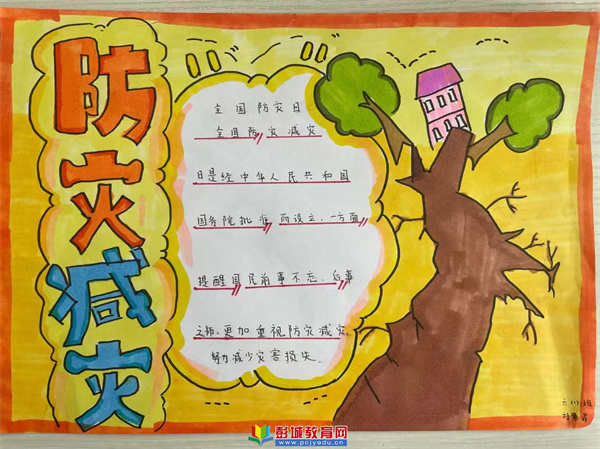 防灾减灾
全国防灾日
全国防灾减灾
日是经中华人民共和国
国务院批准而设立,一方面
提醒国民前事不忘,后事
之师,更加重视防灾减灾,
努力减少灾害损失.
彭城教育网
www.pcjyedu.cn